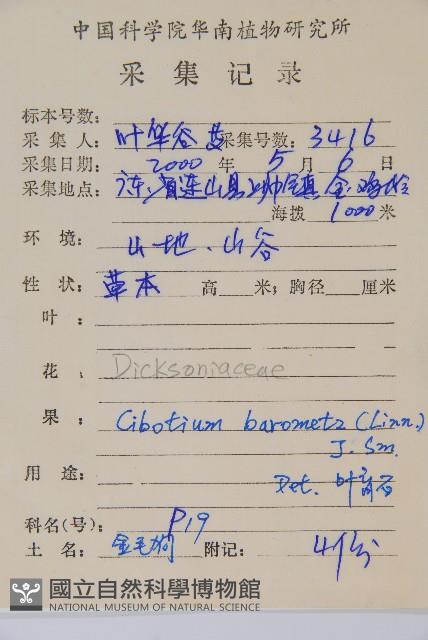 中国科学院华南植物研究所
采集记录
标本号数:
采集人: 叶华谷 采集号数: 3416
采集日期: 2000 年 5 月 6 日
采集地点: 广东省连山县上帅镇金鸡岭
海拨 1000 米
环境: 山地、山谷
性状: 草本 高 米; 胸径 厘米
叶:
花: Dicksoniaceae
果: Cibotium barometz (Linn.)
J. Sm.
用途: Det. 叶育石
科名(号): P19
土名: 金毛狗 附记: 4份
國立自然科學博物館
NATIONAL MUSEUM OF NATURAL SCIENCE